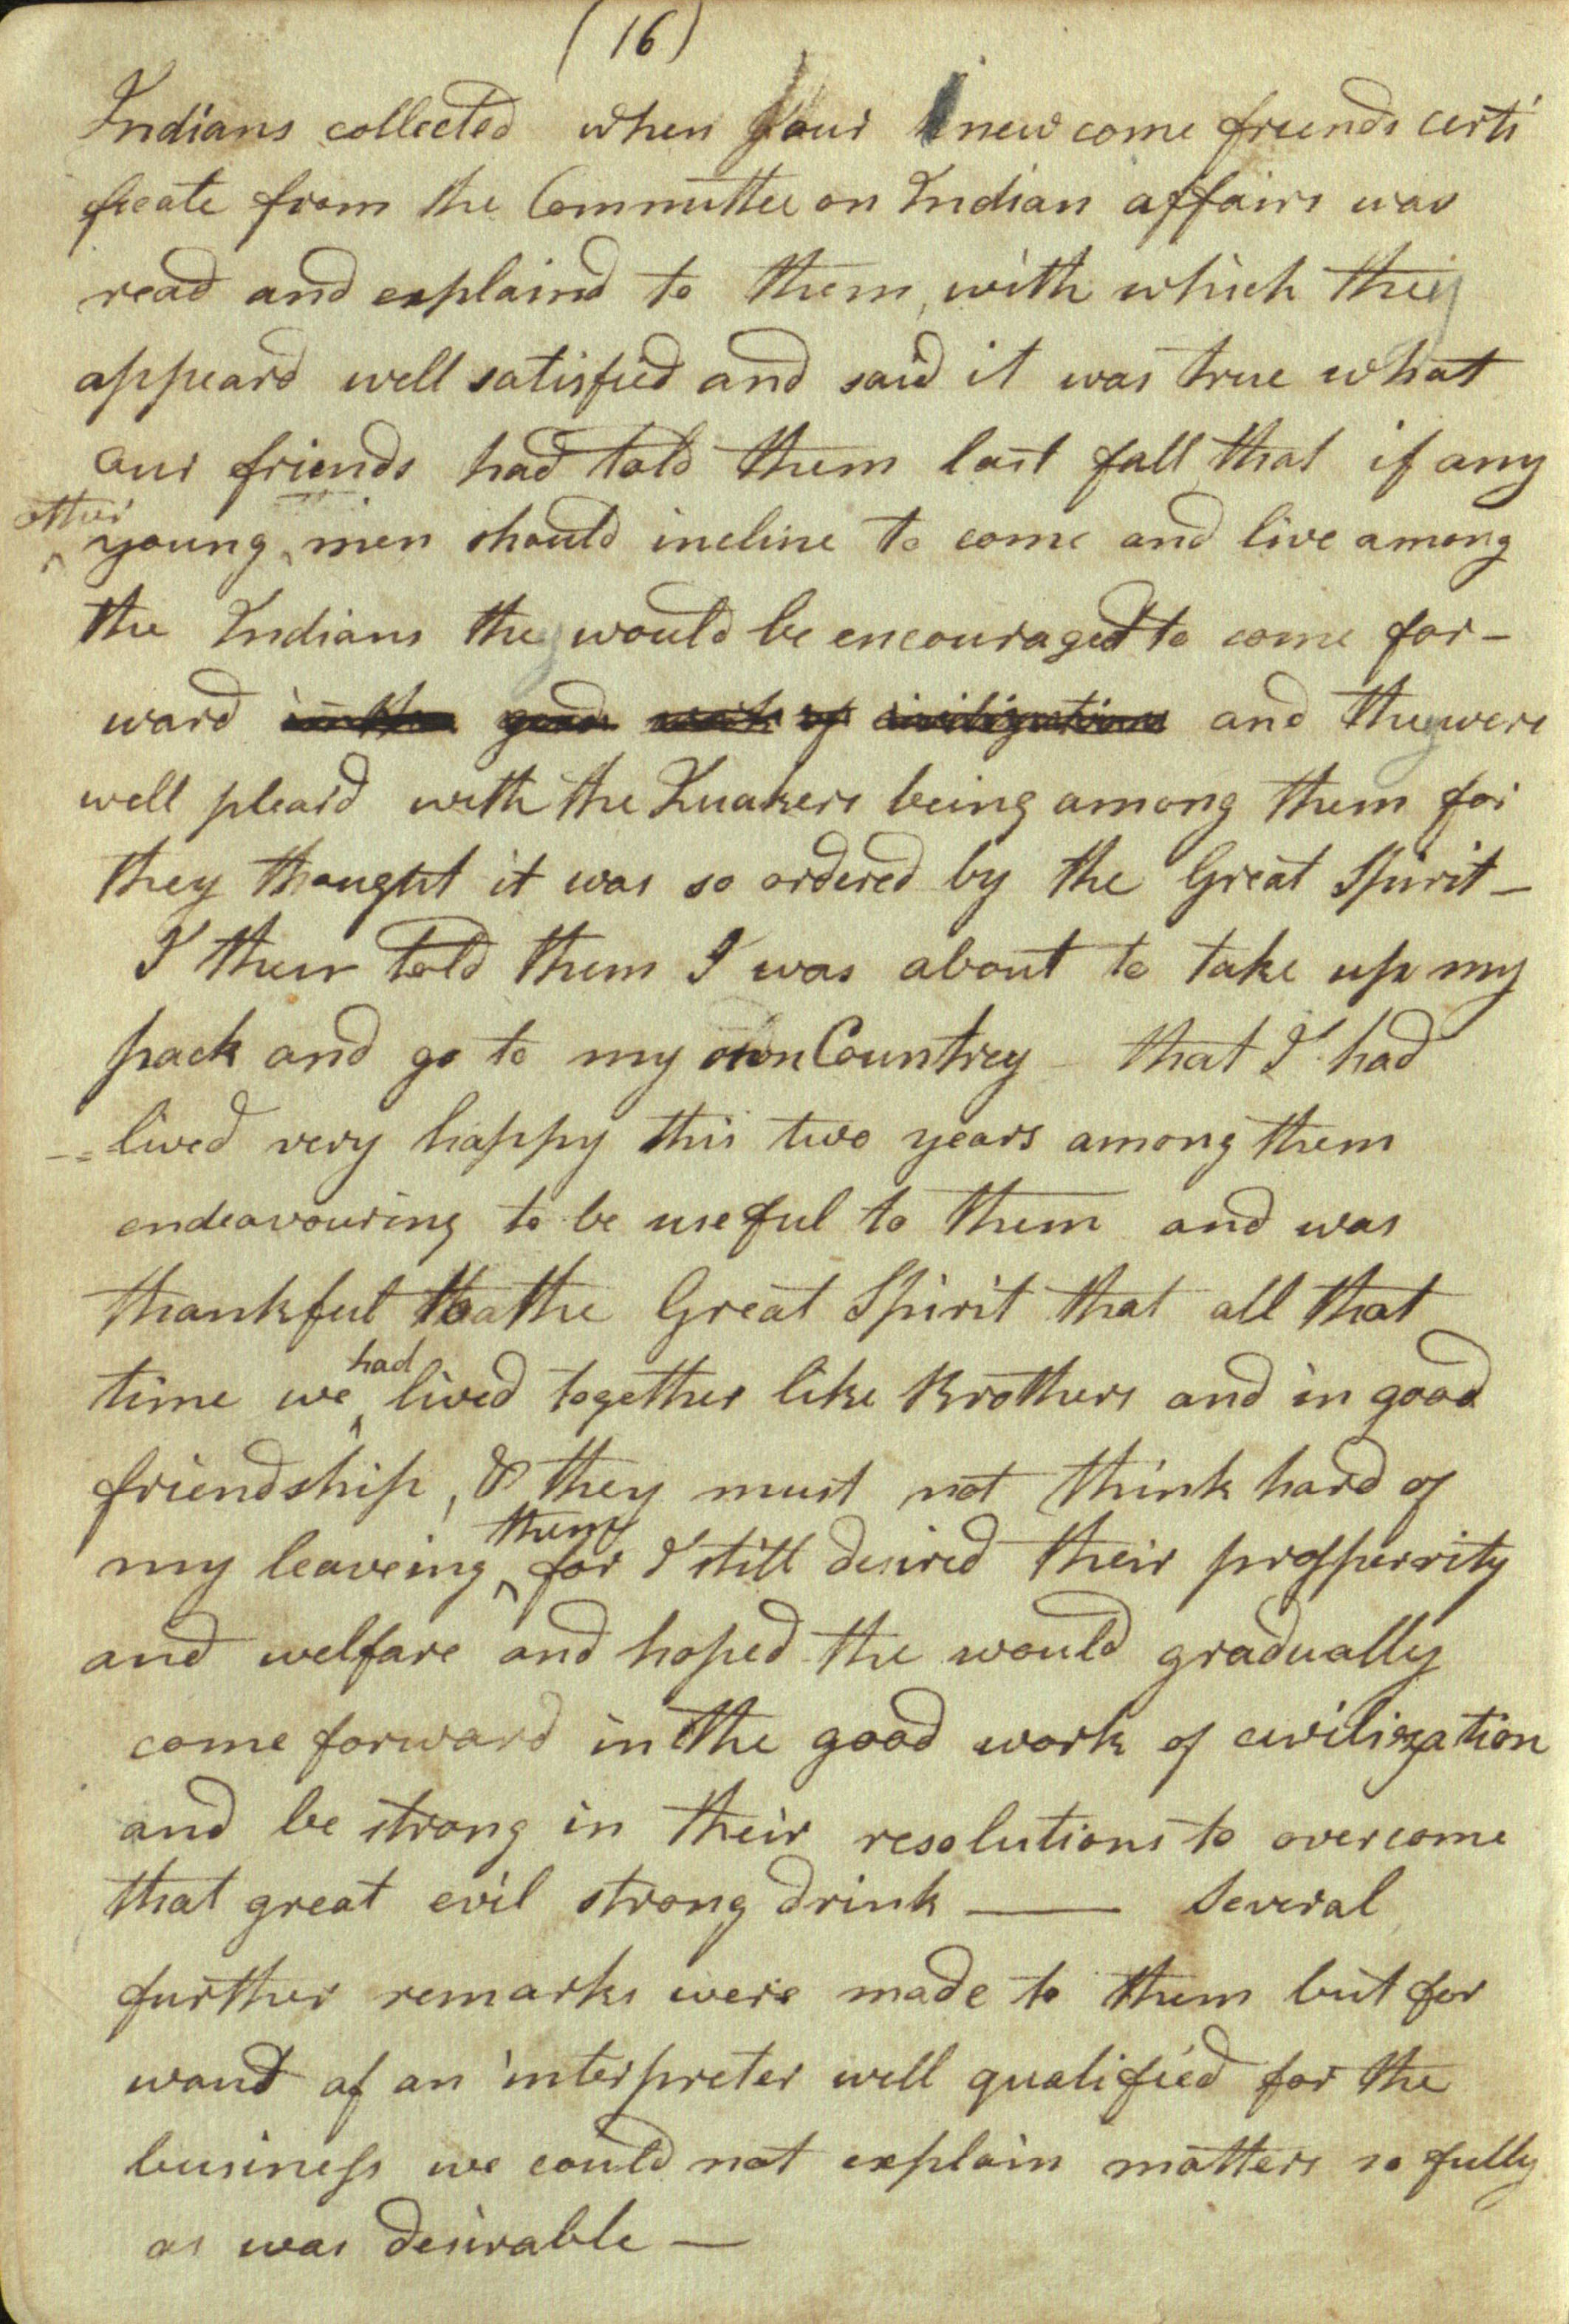 (16)
Indians collected when our new come friends certi
ficate from the Committee on Indian affairs was
read and explaind to them, with which they
appeard well satisfied and said it was true what
our friends had told them last fall that if any
other
young men should incline to come and live among
the Indians they would be encouraged to come for-
ward in the good work of civilization and they were
well pleasd with the Quakers being among them for
they thought it was so ordered by the Great Spirit -
I then told them I was about to take up my
pack and go to my own Countrey - that I had
lived very happy this two years among them
endeavouring to be useful to them and was
thankful to the Great Spirit that all that
had
time we lived together like Brothers and in good
friendship, & they must not think hard of
them
my leaveing for I still desired their prossperrity
and welfare and hoped the would gradually
come forward in the good work of civilization
and be strong in their resolutions to overcome
that great evil strong drink — Several
further remarks were made to them but for
want of an interpreter well qualified for the
business we could not explain matters so fully
as was desirable —